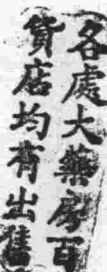 各處大藥房百
貨店均有出售